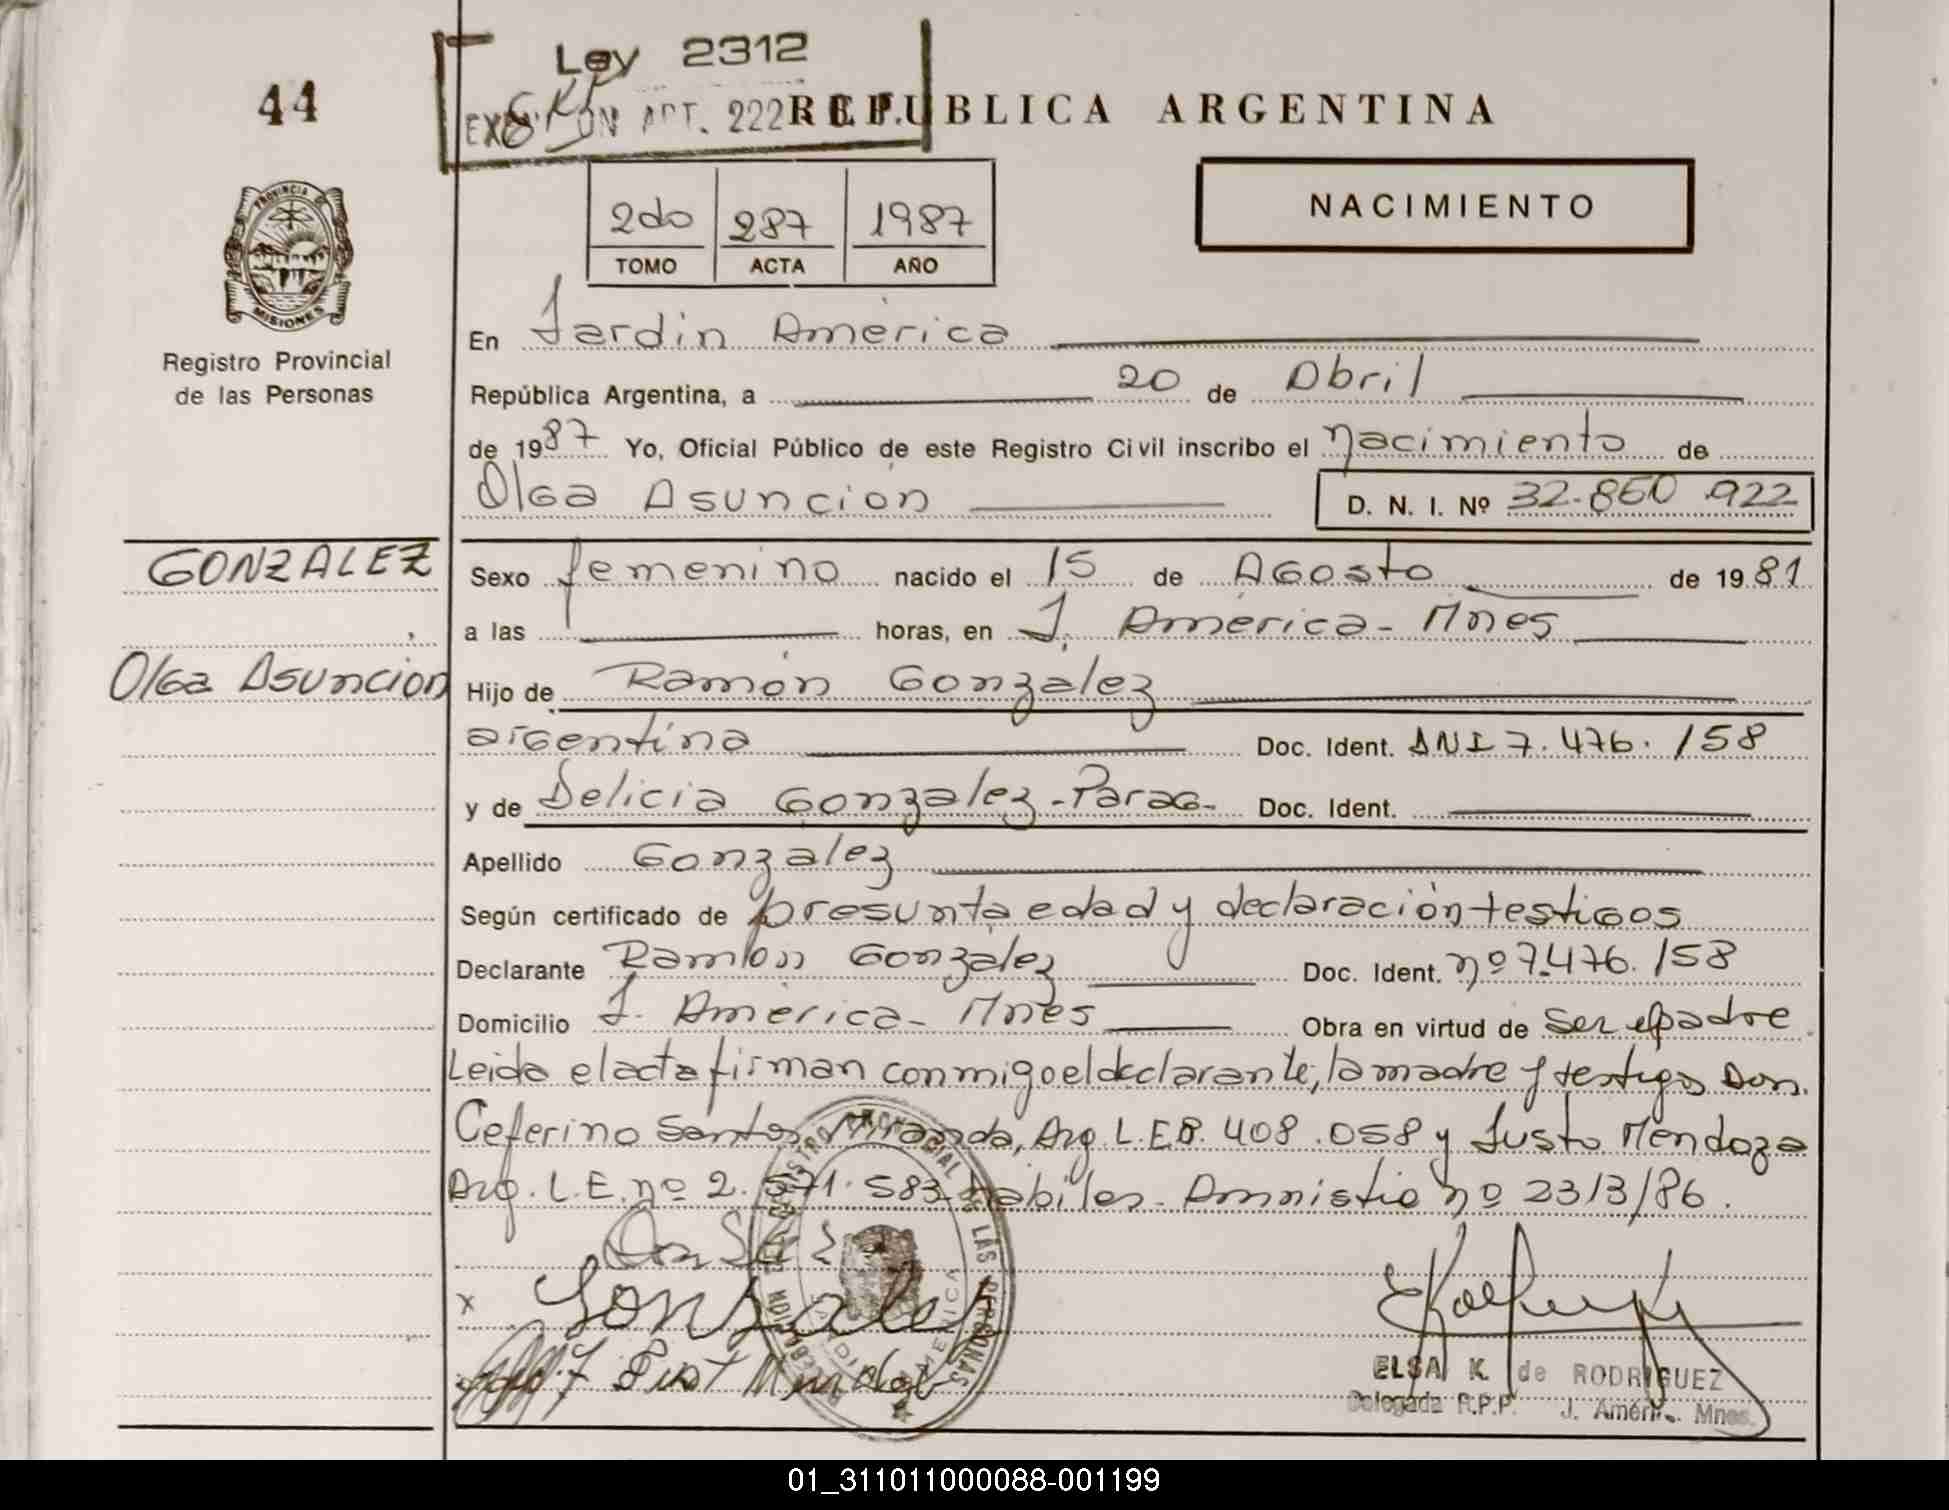 44
Ley 2312
ART. 222
REPUBLICA ARGENTINA
PROVINCIA
MISIONES
Registro Provincial
de las Personas
2do 287 1987
TOMO ACTA AÑO
NACIMIENTO
En Jardín América
República Argentina, a 20 de Abril
de 1987 Yo, Oficial Público de este Registro Civil inscribo el nacimiento de
Olga Asunción
D. N. I. Nº 32.860.922
GONZALEZ
Sexo femenino nacido el 15 de Agosto de 1981
a las horas, en J. América - Mnes
Olga Asuncion
Hijo de Ramón González
argentina Doc. Ident. DNI 7.476.158
y de Delicia Gonzalez - Parag - Doc. Ident.
Apellido Gonzalez
Según certificado de presunta edad y declaración testigos
Declarante Ramón González Doc. Ident. nº 7.476.158
Domicilio J. América - Mnes Obra en virtud de ser el padre
Leida el acta firman conmigo el declarante, la madre y testigos Don
Ceferino Santos Miranda, Arg. L.E 8.408.058 y Justo Mendoza
Arg. L.E. nº 2.571.583 habiles - Amnistia nº 2313/86.
REGISTRO PROVINCIAL DE LAS PERSONAS
x Gonzalez
ELSA K. de RODRIGUEZ
Delegada R.P.P. J. Améri. Mnes.
01_311011000088-001199